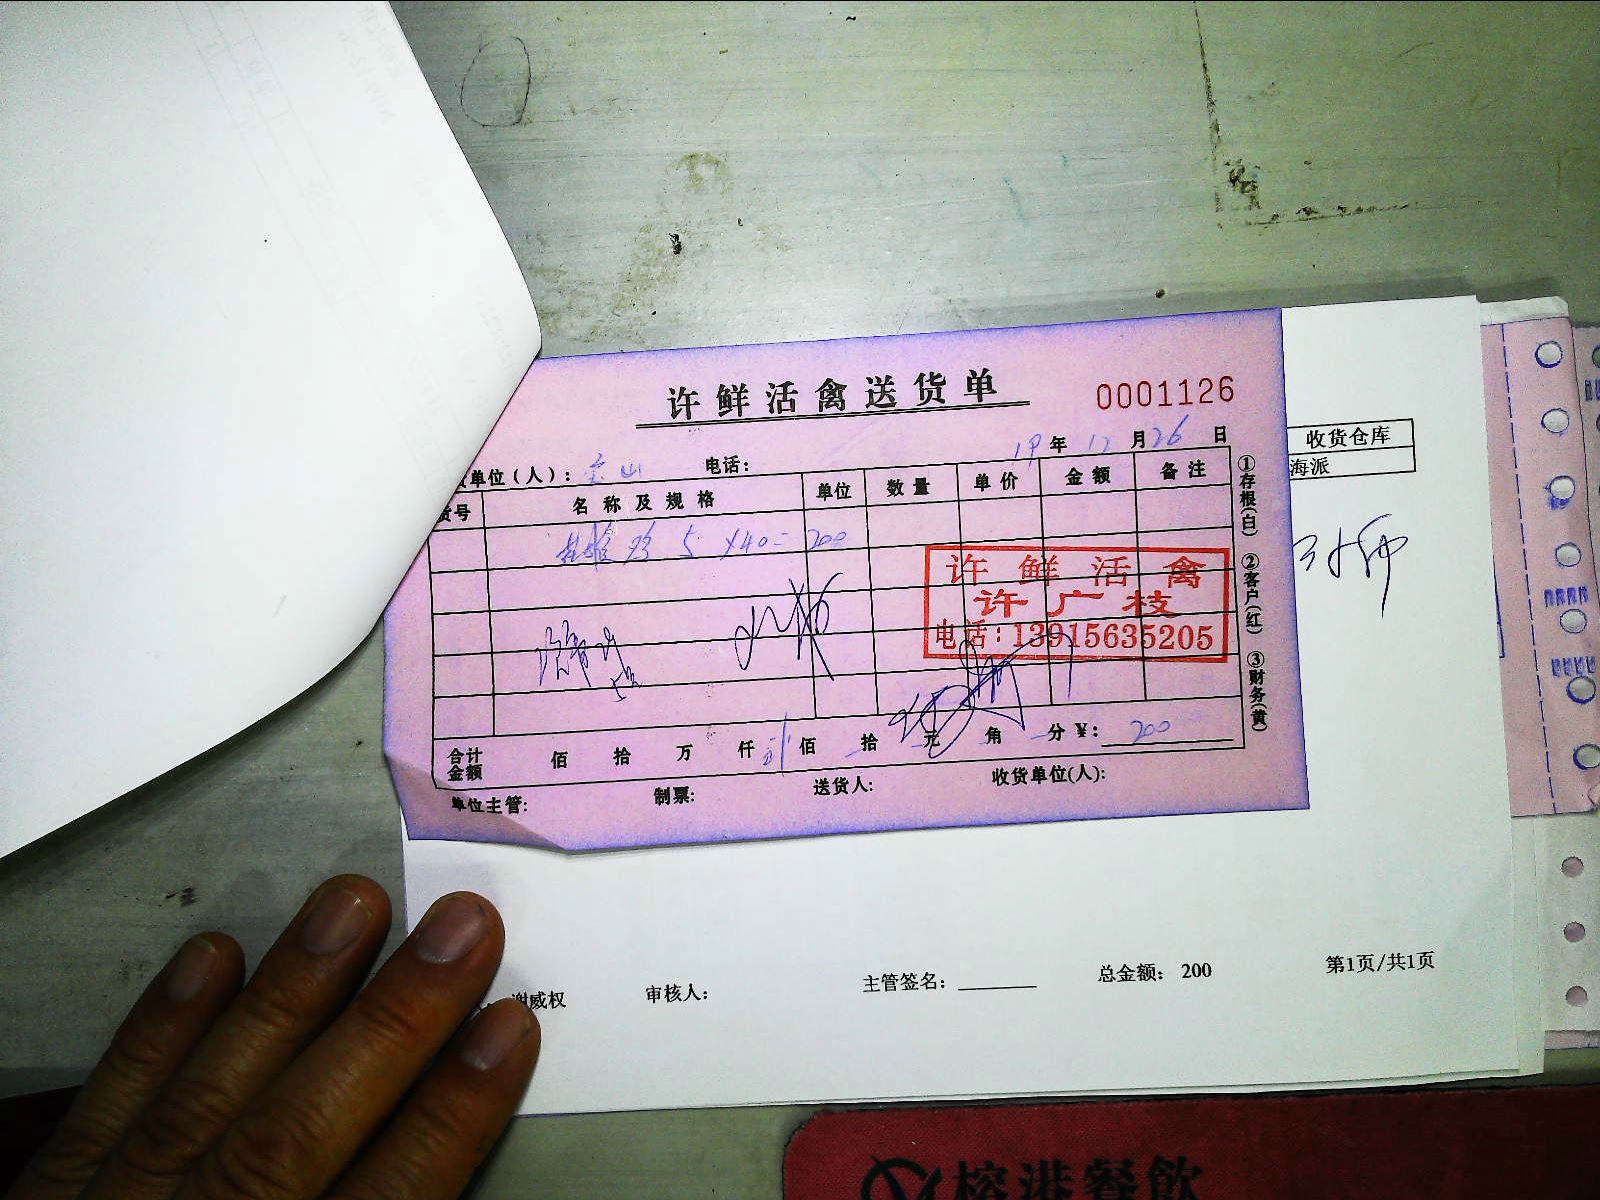 许鲜活禽送货单
0001126
19年12月26日
单位(人): 宝山 电话:
货号 名称及规格 单位 数量 单价 金额 备注
鸡 5 x40= 200
许鲜活禽
许广枝
电话:13915635205
合计金额 佰 拾 万 仟 佰 拾 元 角 分 ¥: 200
单位主管: 制票: 送货人: 收货单位(人):
①存根(白) ②客户(红) ③财务(黄)
收货仓库
海派
谢威权 审核人: 主管签名: 总金额: 200 第1页/共1页
榕港餐飲